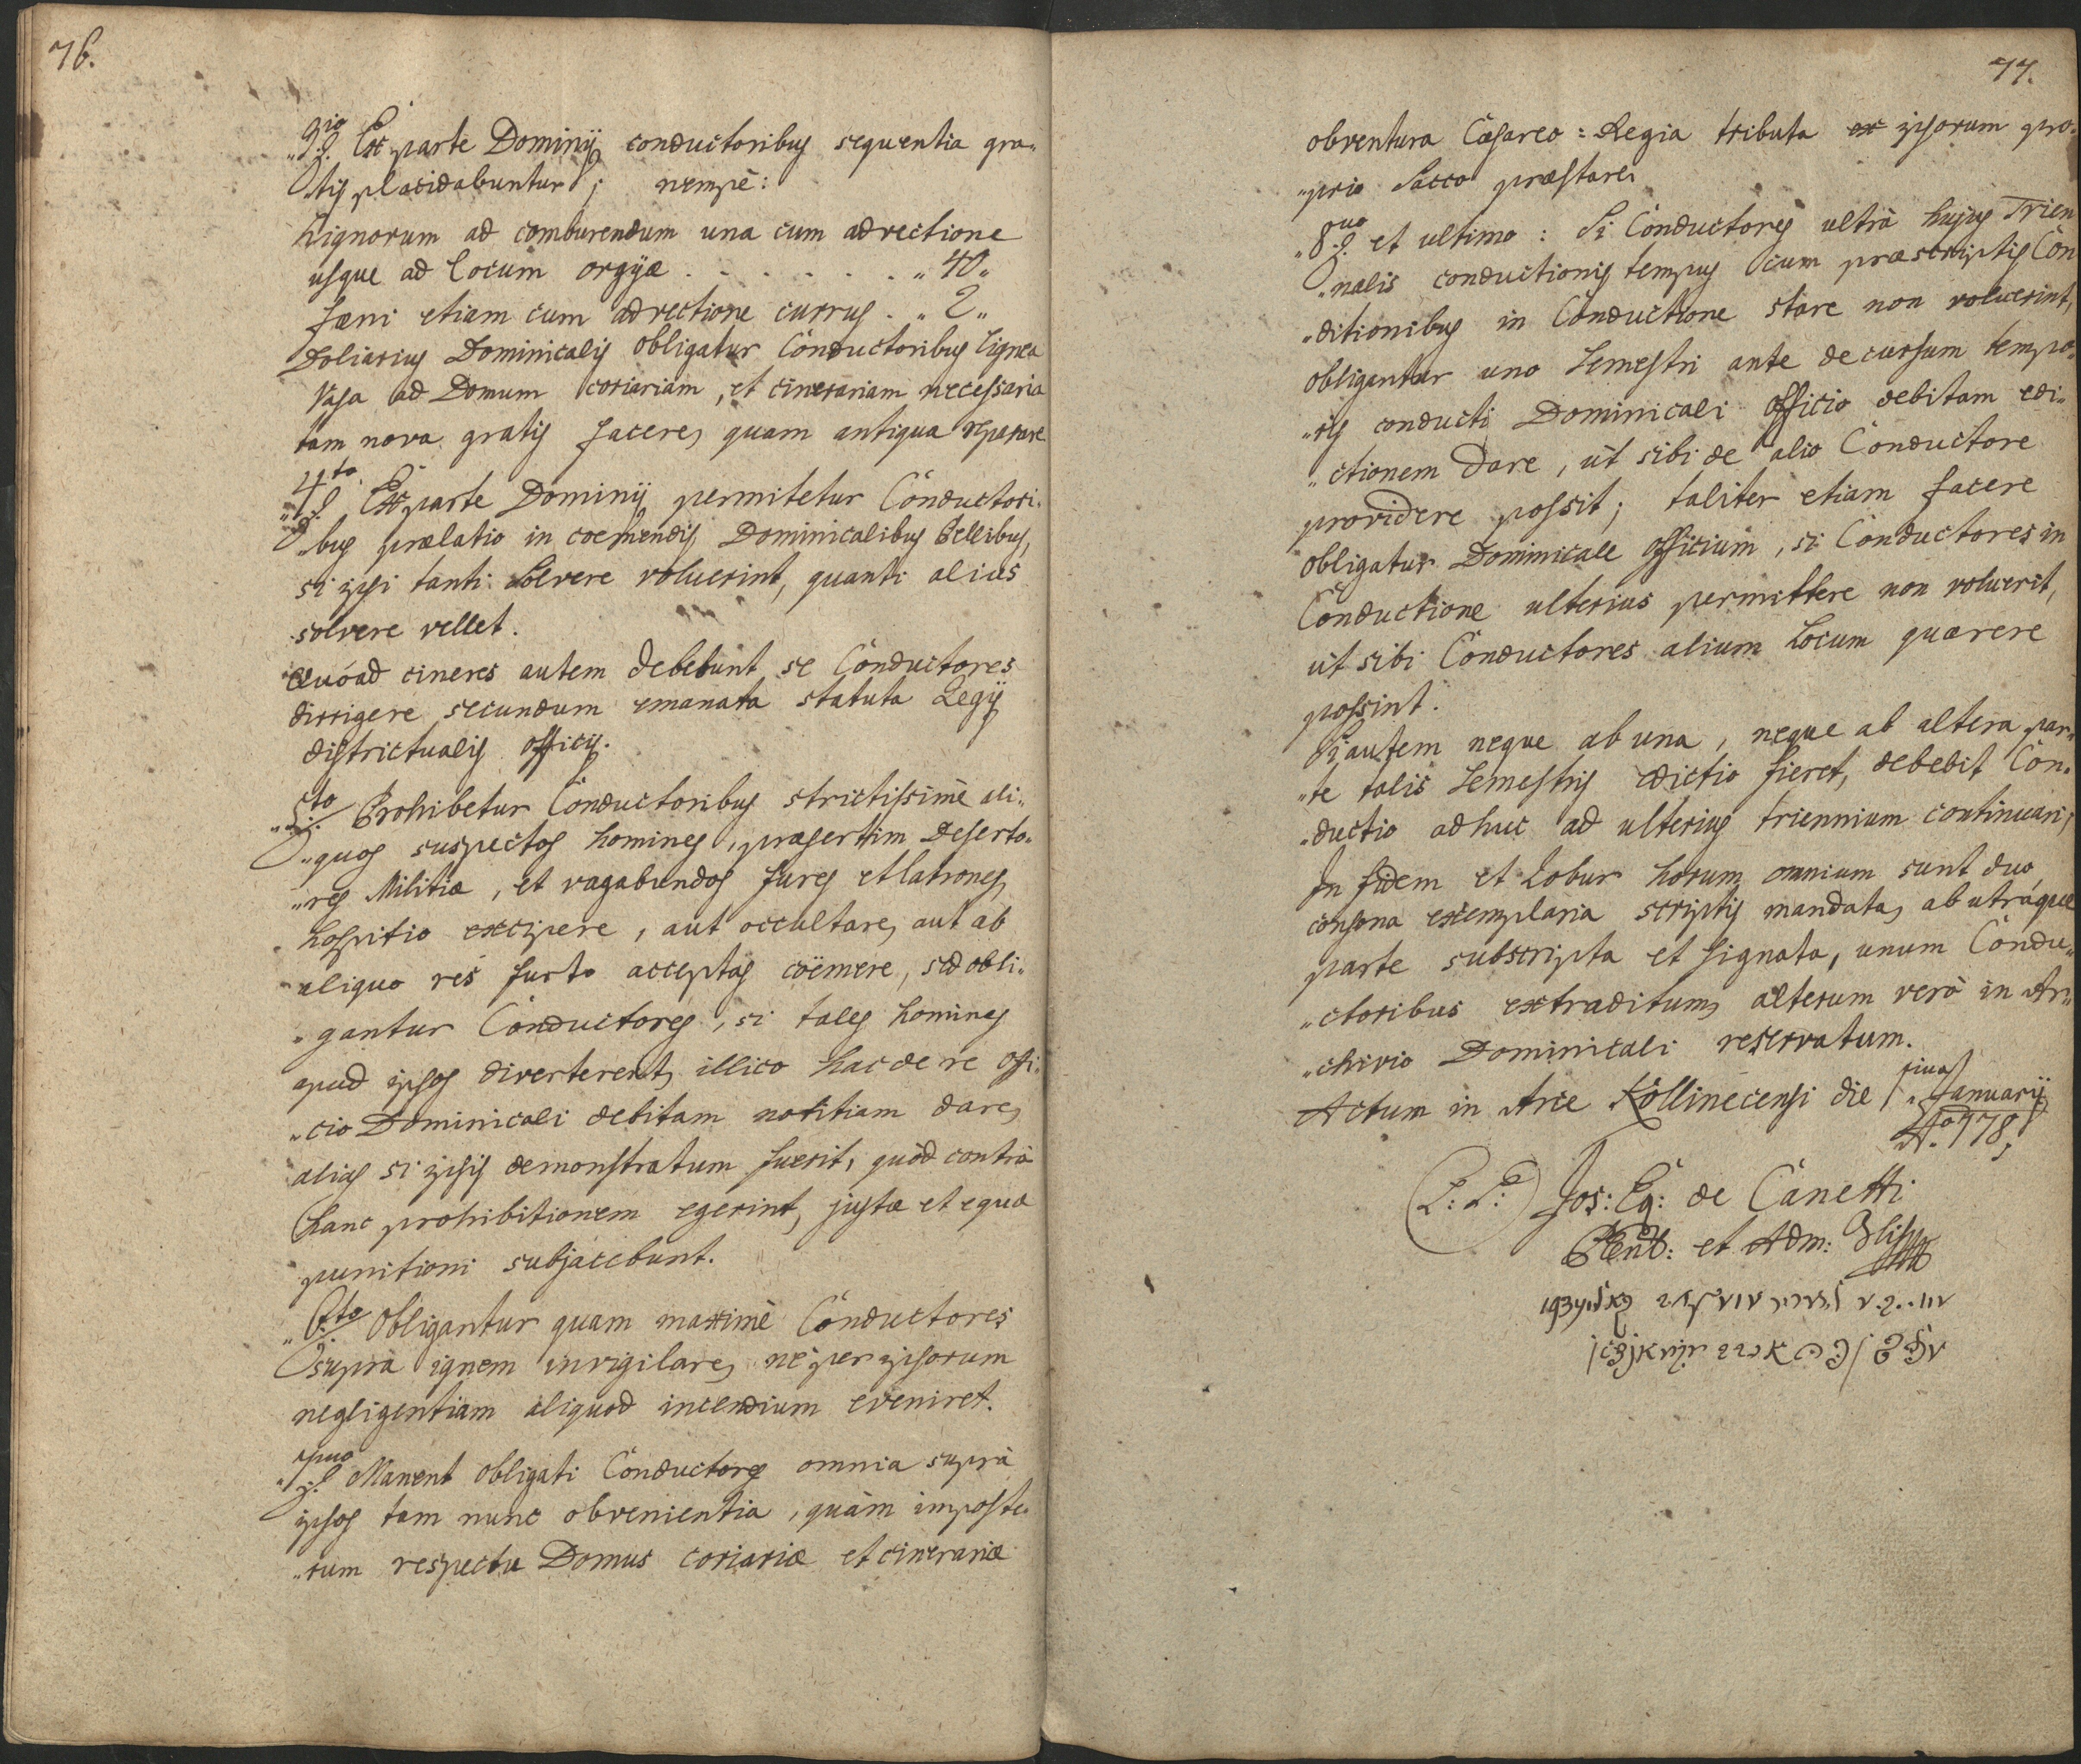 76.
"3tio Ex parte Dominij conductoribus sequentia gra„
tis placidabuntur; nempè:
Lignorum ad comburendum una cum advectione
usque ad locum orgÿæ . . . . . . . „40„
fæni etiam cum advectione currus . „2„
Doliarius Dominicalis obligatur Conductoribus lignea
Vasa ad Domum coriariam, et cinerariam necessaria
tam nova gratis facere, quam antiqua reparare
„4to Ex parte Dominij permitetur Conductori„
„bus prælatio in coemendis Dominicalibus Pellibus,
si ipsi tanti solvere voluerint, quanti alius
solvere vellet.
Quóad cineres autem debebunt se Conductores
dirrigere secundum emanata statuta Regij
districtualis officij.
„5to Prohibetur Conductoribus strictissimè ali„
„quos suspectos homines, præsertim Deserto„
„res Militiæ, et vagabundos fures et latrones,
hospitio excipere, aut occultare, aut ab
aliquo res furto acceptas coëmere, sed obli„
„gantur Conductores, si tales homines
apud ipsos diverterent, illico hac de re offi„
„cio Dominicali debitam notitiam dare,
alias si ipsis demonstratum fuerit, quòd contrà
hanc prohibitionem egerint, justæ et equæ
punitioni subjacebunt.
„6to Obligantur quam maximè Conductores
suprà ignem invigilare, ne per ipsorum
negligentiam aliquod incendium eveniret.
„7mo Manent obligati Conductores omnia suprà
ipsos tam nunc obvenientia, quàm imposte„
„rum respectu Domus coriariæ et cinerariæ
77.
obventura Cæsareo=Regia tributa ex ipsorum pro„
„prio Sacco præstare.
„8vo et ultimo: Si Conductores ultrà hujus Trien
„nalis conductionis tempus cum præscriptis Con
„ditionibus in Conductione stare non voluerint,
obligantur uno Semestri ante decursum tempo„
„ris conducti Dominicali officio debitam edi„
„ctionem dare, ut sibi de alio Conductore
providere possit; taliter etiam facere
obligatur Dominicale officium, si Conductores in
Conductione ulterius permittere non voluerit,
ut sibi Conductores alium Locum quærere
possint.
Si autem neque ab una, neque ab altera par„
„te talis Semestris edictio fieret, debebit Con„
„ductio adhuc ad ulterius triennium continuari,
In fidem et Robur horum omnium sunt duo
consona exemplaria scriptis mandata, ab utráque
parte subscripta et signata, unum Condu„
„ctoribus extraditum, alterum verò in Ar„
„chivio Dominicali reservatum.
Actum in Arce Köllinecensi die 1ma Januarij
Ao 178
(L: S:) Jos: Eq: de Canetti
et Adm: